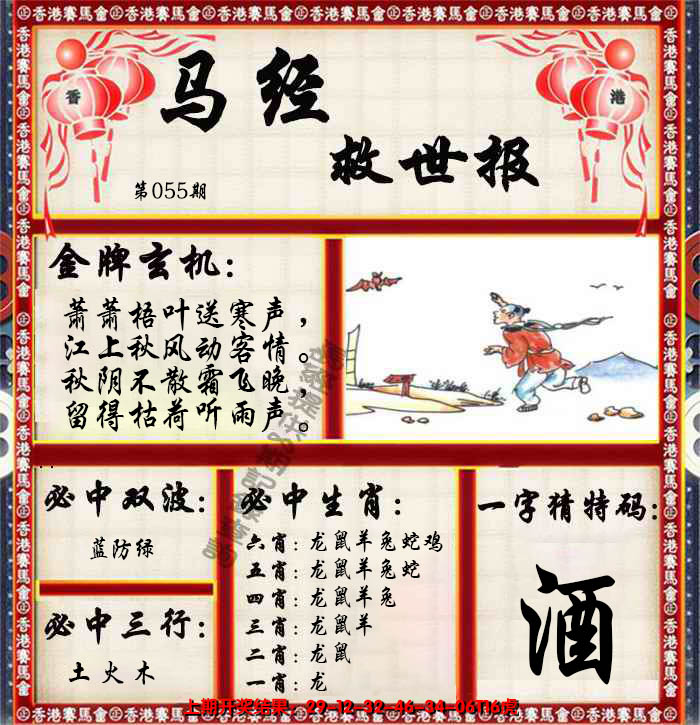 香港賽馬會
香
港
马经
救世报
第055期
金牌玄机：
萧萧梧叶送寒声，
江上秋风动客情。
秋阴不散霜飞晚，
留得枯荷听雨声。
必中双波：
蓝防绿
必中三行：
土火木
必中生肖：
六肖：龙鼠羊兔蛇鸡
五肖：龙鼠羊兔蛇
四肖：龙鼠羊兔
三肖：龙鼠羊
二肖：龙鼠
一肖：龙
一字猜特码：
酒
上期开奖结果：29-12-32-46-34-06T16虎